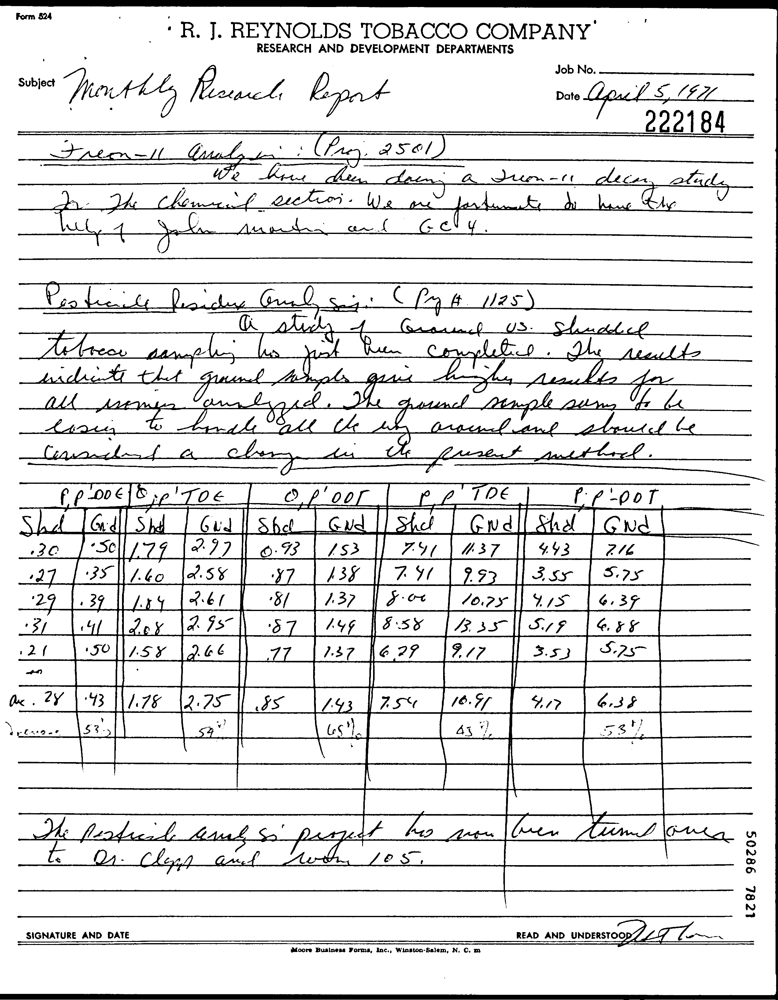 Form 524
R. J. REYNOLDS TOBACCO COMPANY
RESEARCH AND DEVELOPMENT DEPARTMENTS
Subject Monthly Research Report
Job No.
Date April 5, 1971
222184
Freon-11 Analysis: (Proj. 2501)
We have been doing a Freon-11 decay study
for the chemical section. We are fortunate to have the
help of John Martin and GC 4.
Pesticide Residue Analysis: ( 1125)
A study of Ground vs. Shredded
tobacco sampling has just been completed. The results
indicate that ground samples give higher results for
all isomers analyzed. The ground sample seems to be
easier to handle all the way around and should be
considered a change in the present method.
P,P'DDE O,P'TDE O,P'DDT P P'TDE P,P'-DDT
Shd Gnd Shd GNd Shd GNd Shd GNd Shd GNd
.30 .50 1.79 2.97 0.93 1.53 7.41 11.37 4.43 7.16
.27 .35 1.60 2.58 .87 1.38 7.41 9.93 3.55 5.75
.29 .39 1.84 2.61 .81 1.37 8.00 10.75 4.15 6.39
.31 .41 2.08 2.95 .87 1.49 8.58 13.35 5.19 6.88
.21 .50 1.58 2.66 .77 1.37 6.29 9.17 3.53 5.75
.28 .43 1.78 2.75 .85 1.43 7.54 10.91 4.17 6.38
53% 54% 65% 43% 53%
The Pesticide analysis project has now been turned over
to Dr. Clapp and room 105.
50286 7821
SIGNATURE AND DATE
READ AND UNDERSTOOD
Moore Business Forms, Inc., Winston-Salem, N. C. m